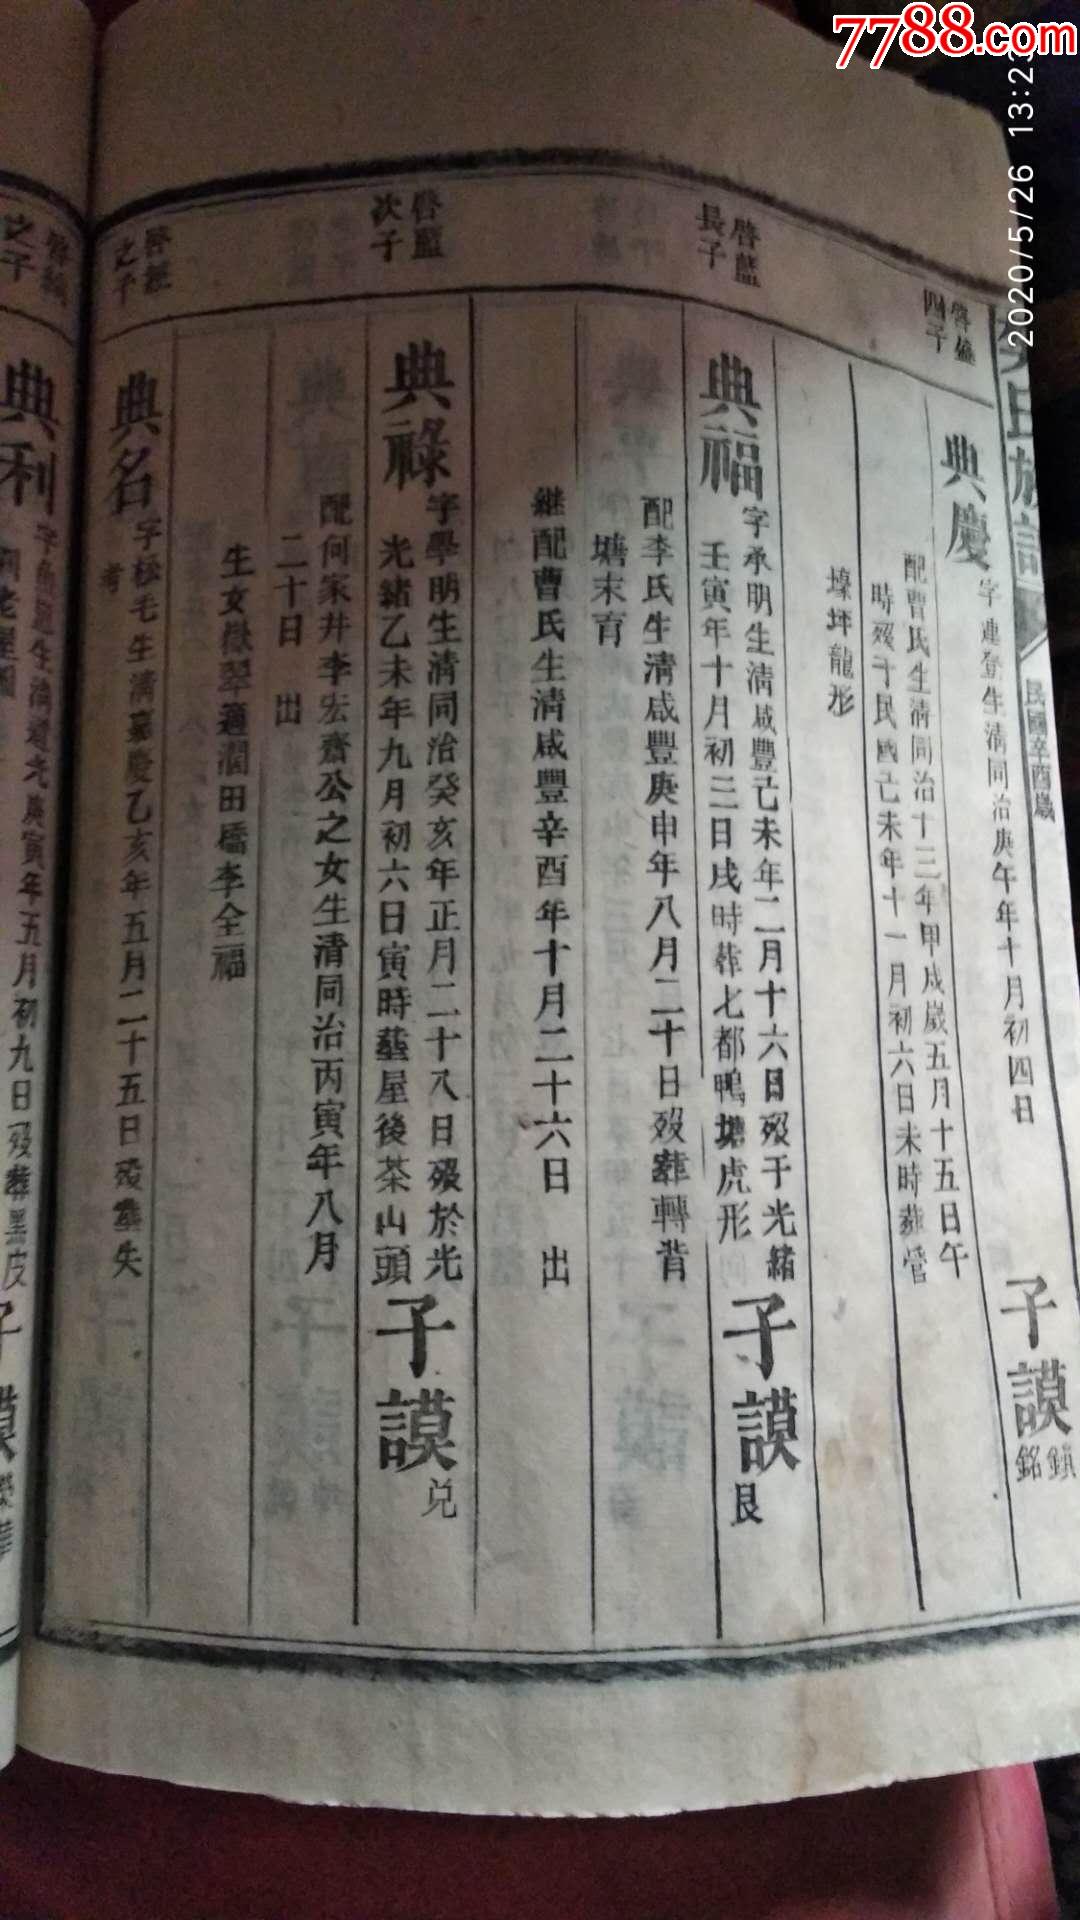 7788.com
2020/5/26 13:23
氏族譜
民國辛酉歲
啓盛
四子
典慶
字連登生清同治庚午年十月初四日
子謨
鎮
銘
配曹氏生清同治十三年甲戌歲五月十五日午
時歿于民國己未年十一月初六日未時葬營
壕坪龍形
啓藍
長子
典福
字承明生清咸豐己未年二月十六日歿于光緒
壬寅年十月初三日戌時葬七都鴨塘虎形
子謨
艮
配李氏生清咸豐庚申年八月二十日歿葬轉背
塘末育
継配曹氏生清咸豐辛酉年十月二十六日 出
啓藍
次子
典祿
字學明生清同治癸亥年正月二十八日歿於光
光緒乙未年九月初六日寅時葬屋後茶山頭
子謨
兑
配何家井李宏齋公之女生清同治丙寅年八月
二十日 出
生女嶽翠適澗田橋李全福
之子
典名
字松毛生清嘉慶乙亥年五月二十五日歿葬失
考
之子
典利
生清道光庚寅年五月初九日歿葬黑皮
子謨